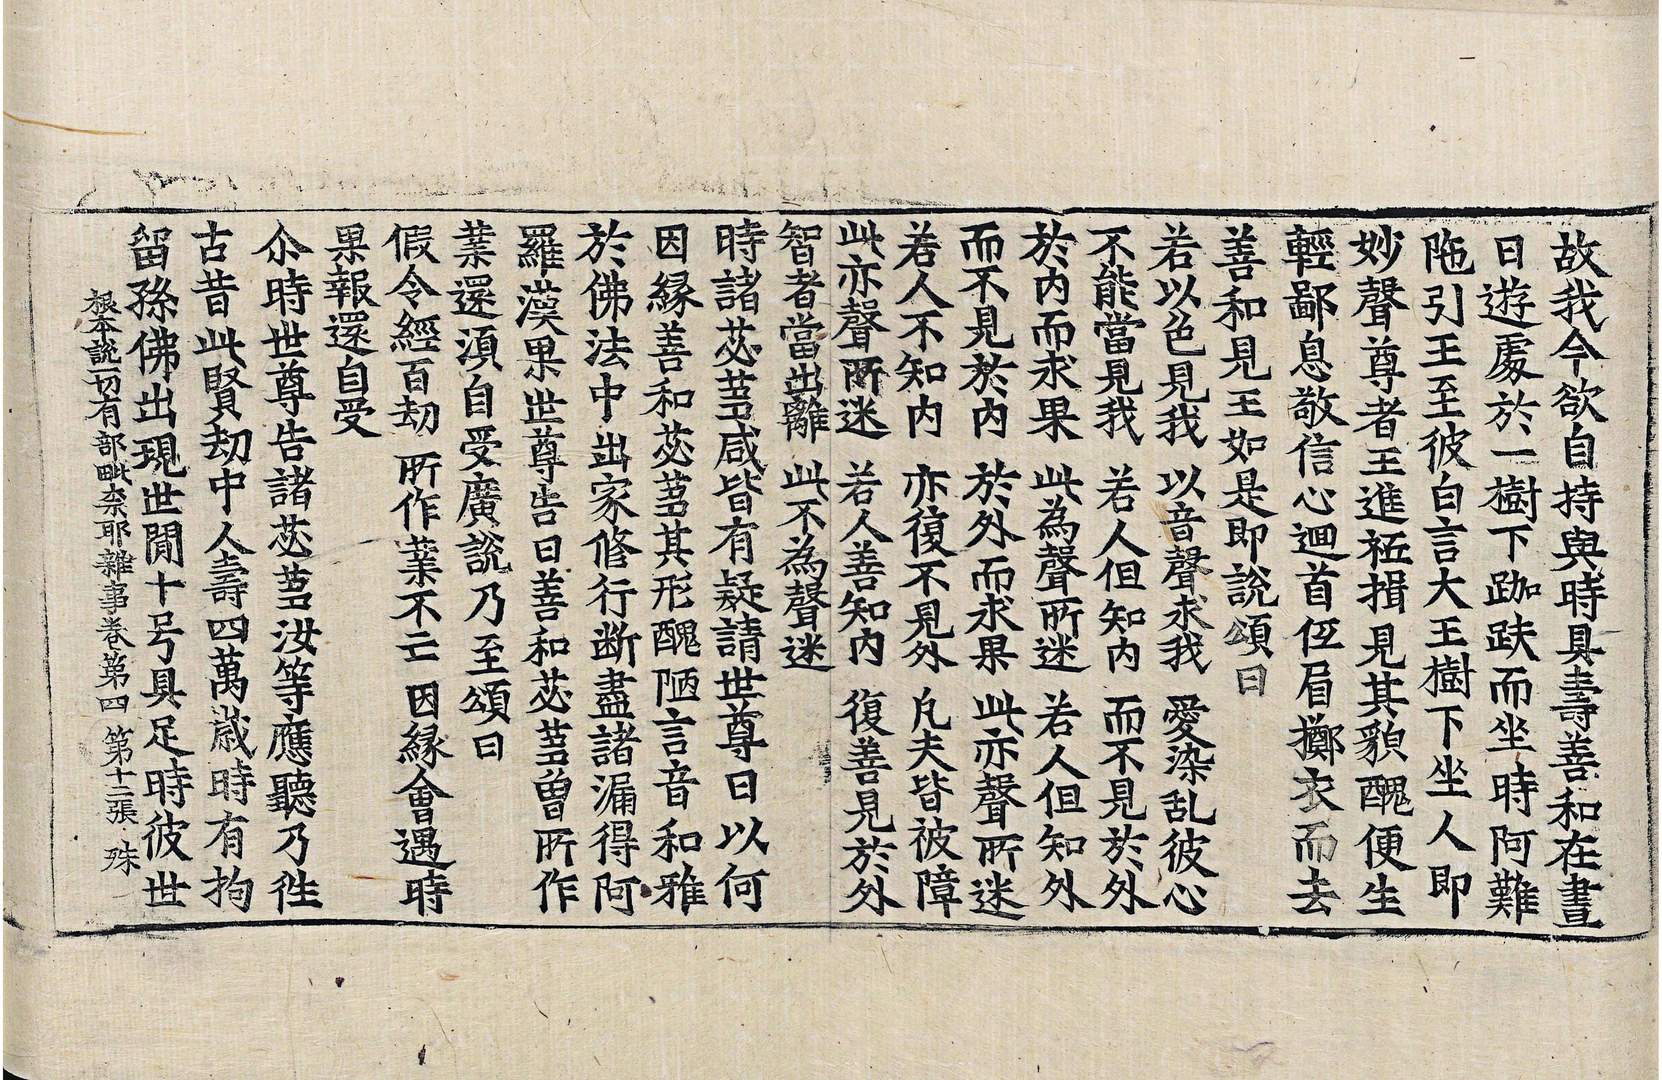 故我今欲自持與時具壽善和在晝
日遊處於一樹下跏趺而坐時阿難
陁引王至彼白言大王樹下坐人即
妙聲尊者王進衹揖見其貌醜便生
輕鄙息敬信心迴首伍眉擲衣而去
善和見王如是即說頌曰
若以色見我　以音聲求我　愛染乱彼心
不能當見我　若人但知內　而不見於外
於內而求果　此為聲所迷　若人但知外
而不見於內　於外而求果　此亦聲所迷
若人不知內　亦復不見外　凡夫皆被障
此亦聲所迷　若人善知內　復善見於外
智者當出離　此不為聲迷
時諸苾芻咸皆有疑請世尊曰以何
因緣善和苾芻其形醜陋言音和雅
於佛法中出家修行断盡諸漏得阿
羅漢果世尊告曰善和苾芻曾所作
業還湏自受廣說乃至頌曰
假令經百劫　所作業不亡　因緣會遇時
果報還自受
尒時世尊告諸苾芻汝等應聽乃徃
古昔此賢劫中人壽四萬歲時有拘
留孫佛出現世閒十号具足時彼世
根本說一切有部毗奈耶雜事卷第四　第十二張　殊